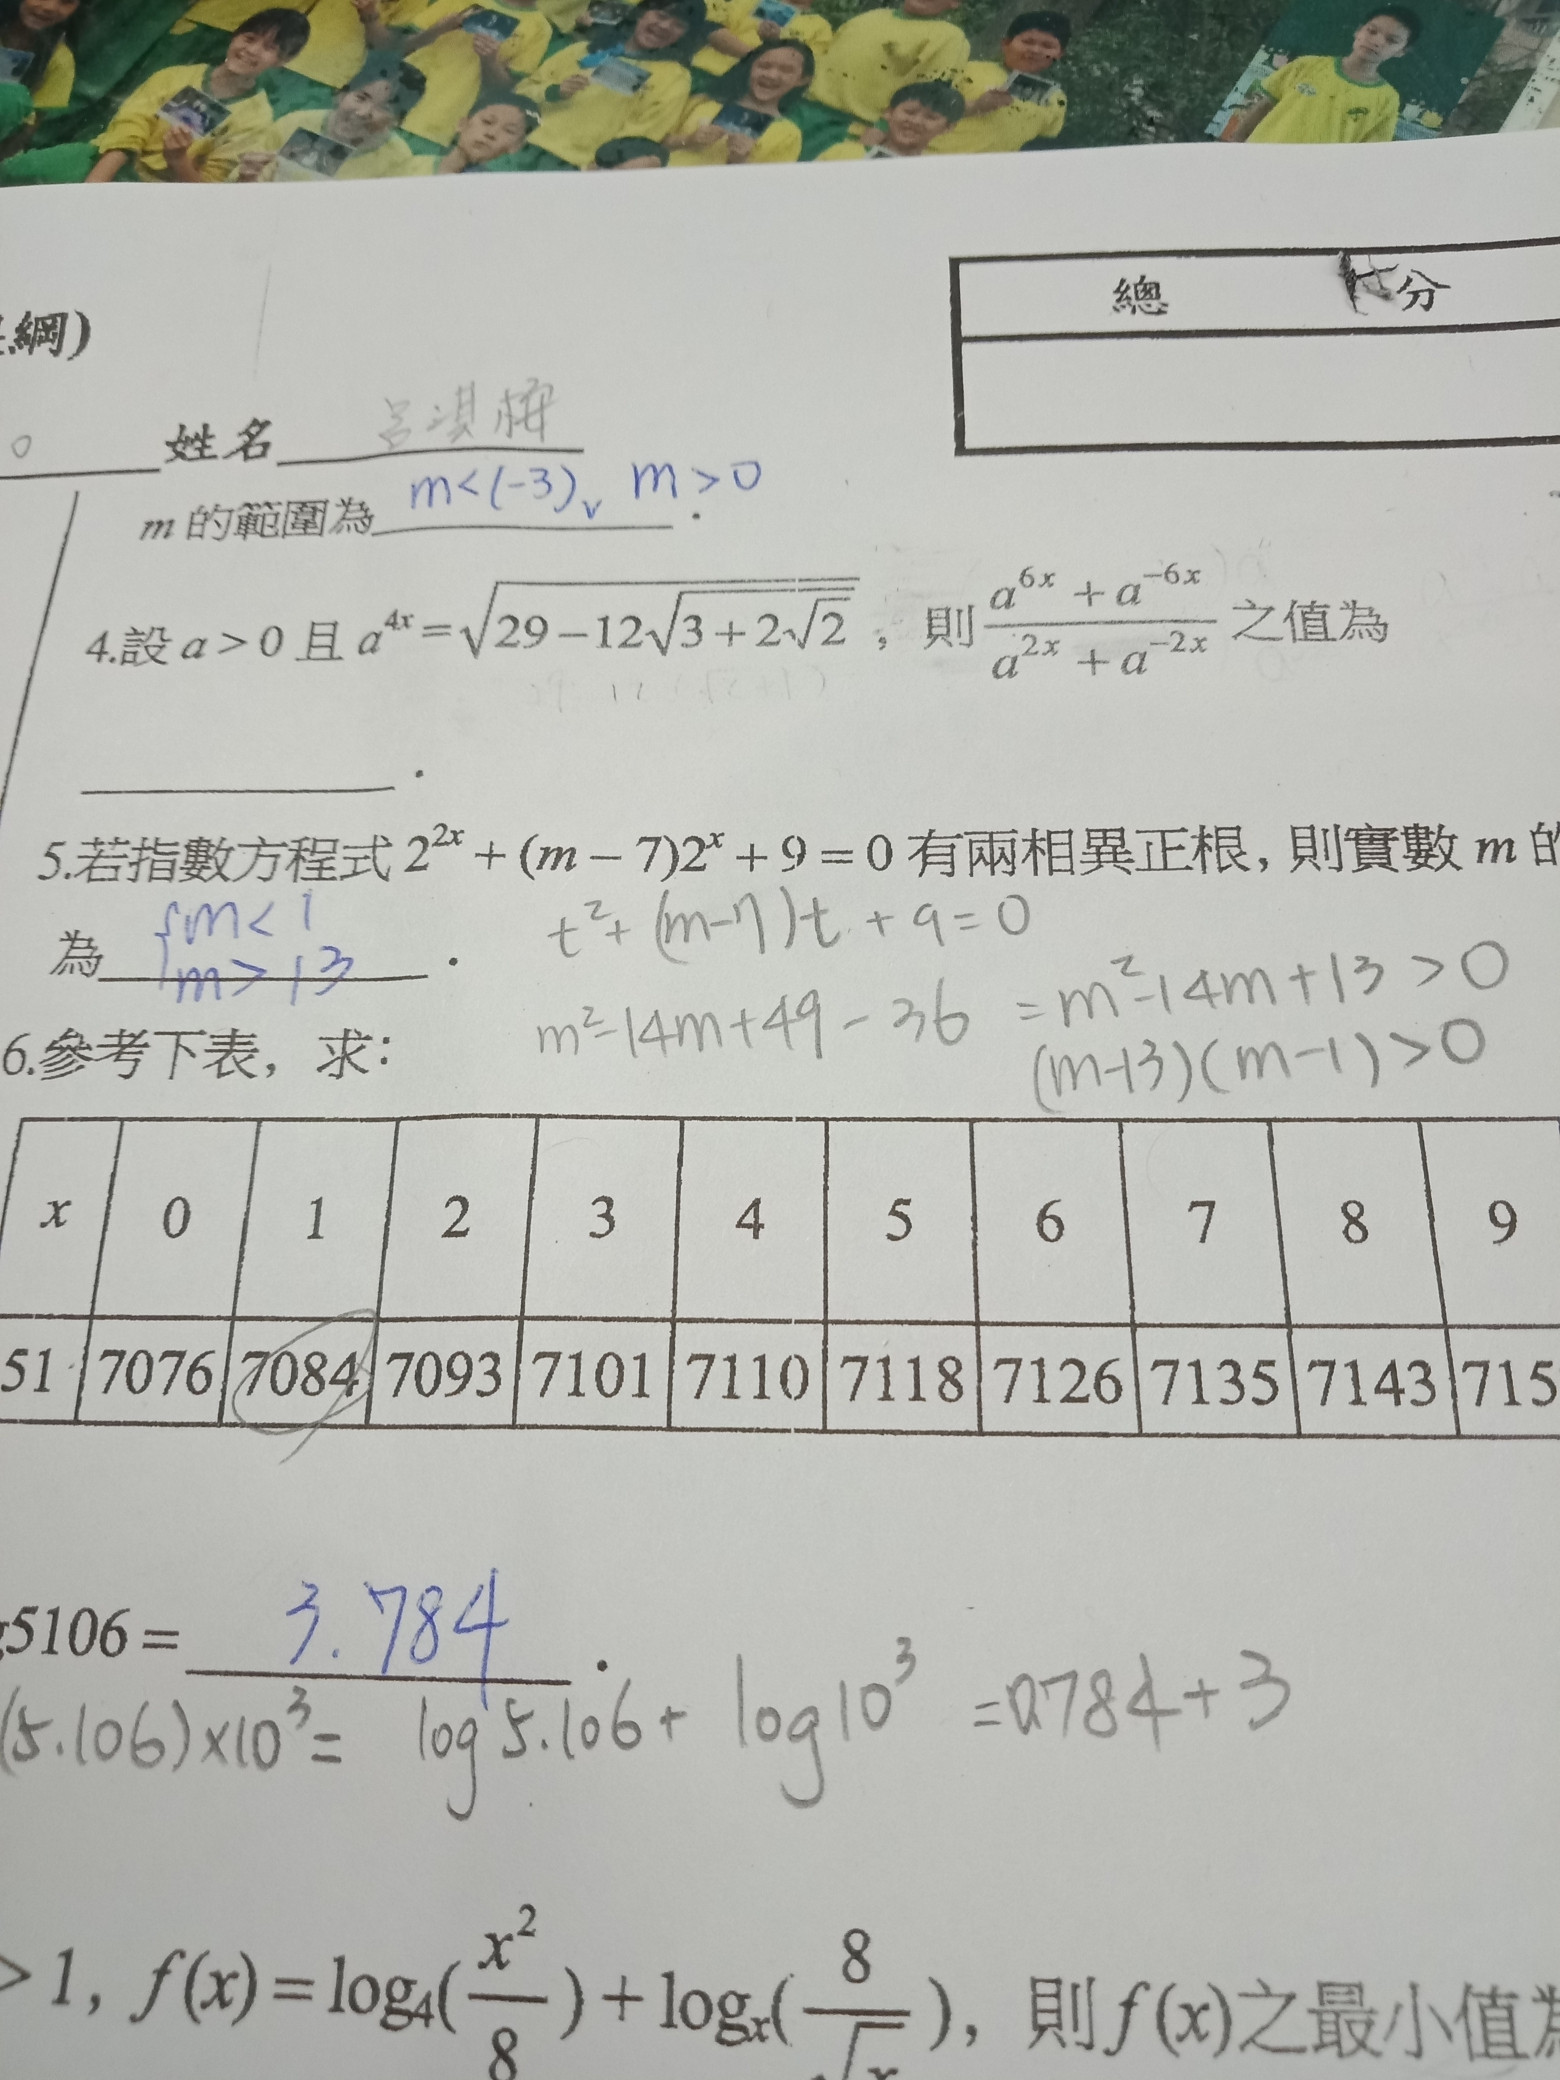 綱)
總 分
姓名 呂淇樺
m 的範圍為 m<(-3), m>0 .
4.設 a > 0 且 a^{4x} = √(29 − 12√(3 + 2√2)) ，則 (a^{6x} + a^{-6x})/(a^{2x} + a^{-2x}) 之值為
.
5.若指數方程式 2^{2x} + (m − 7)2^x + 9 = 0 有兩相異正根, 則實數 m 的
為 {m<1 m>13 .
t²+(m-7)t+9=0
m²-14m+49-36 = m²-14m+13>0
(m-13)(m-1)>0
6.參考下表，求:
x 0 1 2 3 4 5 6 7 8 9
51 7076 7084 7093 7101 7110 7118 7126 7135 7143 715
5106 = 3.784 .
(5.106)×10³= log5.106+ log10³ =0.784+3
> 1, f(x) = log₄(x²/8) + logₓ(8/√x), 則 f(x)之最小值為